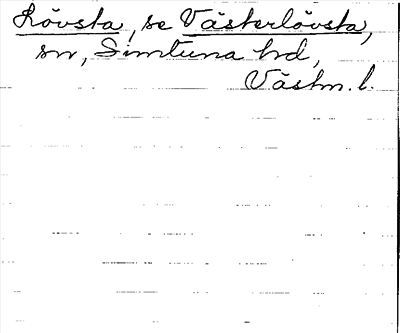 Lövsta, se Västerlövsta,
sn, Simtuna hd,
Västm. l.